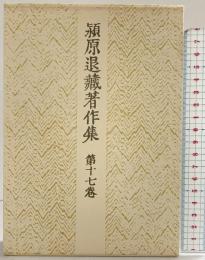 潁原退藏著作集
第十七巻